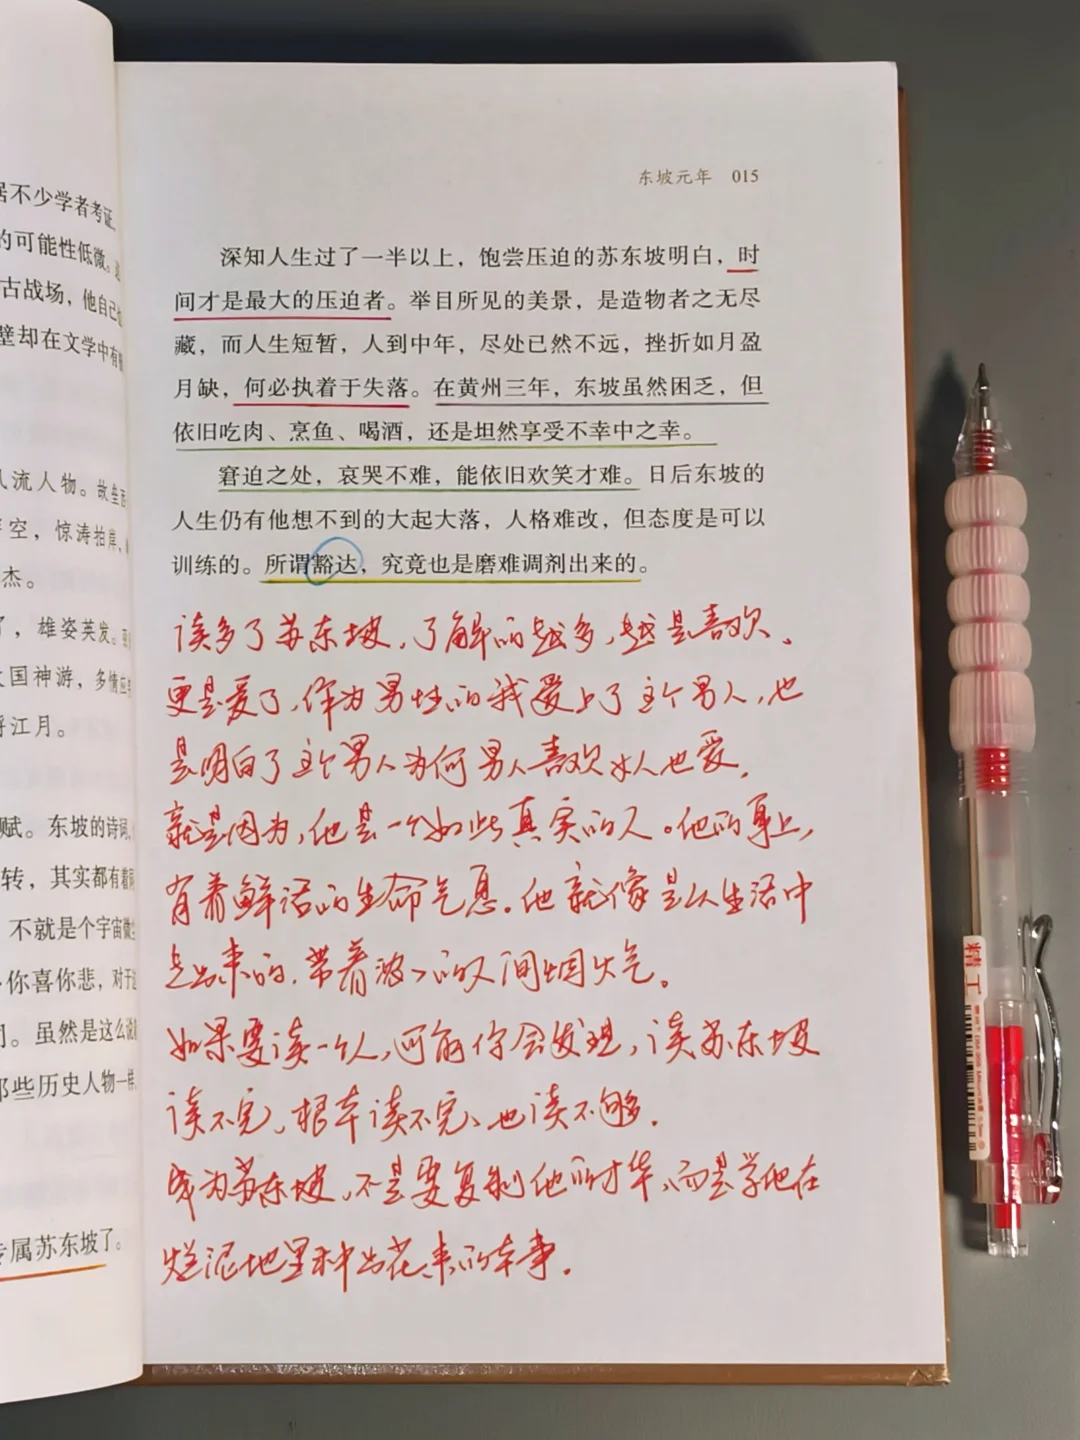 居不少学者考证
的可能性低微。
古战场，他自己
壁却在文学中有
八流人物。故垒西
穿空，惊涛拍岸，
杰。
了，雄姿英发。
故国神游，多情应
酹江月。
赋。东坡的诗词
转，其实都有着
不就是个宇宙微尘
你喜你悲，对于
虽然是这么说
那些历史人物一样
专属苏东坡了。
东坡元年 015
深知人生过了一半以上，饱尝压迫的苏东坡明白，时
间才是最大的压迫者。举目所见的美景，是造物者之无尽
藏，而人生短暂，人到中年，尽处已然不远，挫折如月盈
月缺，何必执着于失落。在黄州三年，东坡虽然困乏，但
依旧吃肉、烹鱼、喝酒，还是坦然享受不幸中之幸。
窘迫之处，哀哭不难，能依旧欢笑才难。日后东坡的
人生仍有他想不到的大起大落，人格难改，但态度是可以
训练的。所谓豁达，究竟也是磨难调剂出来的。
读多了苏东坡，了解的越多，越是喜欢。
更是爱了，作为男性的我爱上了这个男人，也
是明白了这个男人为何男人喜欢女人也爱。
就是因为，他是一个如此真实的人。他的身上，
有着鲜活的生命气息。他就像是从生活中
走出来的，带着浓浓的人间烟火气。
如果要读一个人，可能你会发现，读苏东坡
读不完，根本读不完、也读不够。
成为苏东坡，不是要复制他的才华，而是学他在
烂泥地里种出花来的本事。
精工